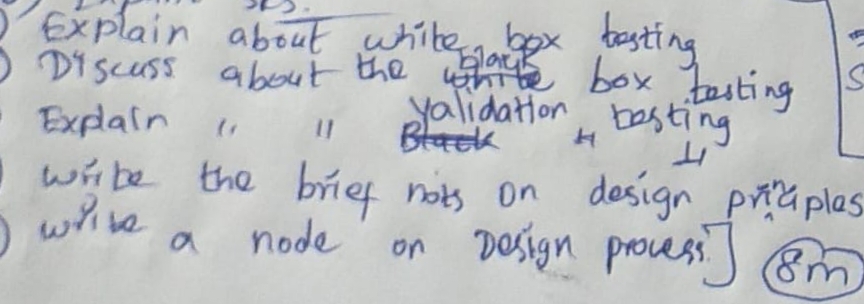 Explain about white box testing
Discuss about the black box testing
Explain " " validation " testing
write the brief nots on design principles
write a node on Design process.] 8m